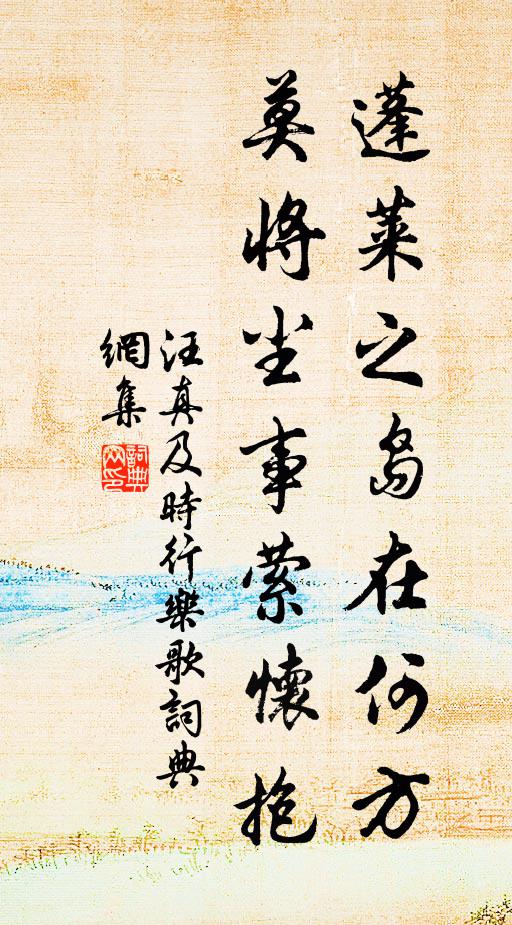 蓬萊之島在何方
莫將尘事縈懷抱
汪真及時行樂歌詞典
網集
詞典
网印